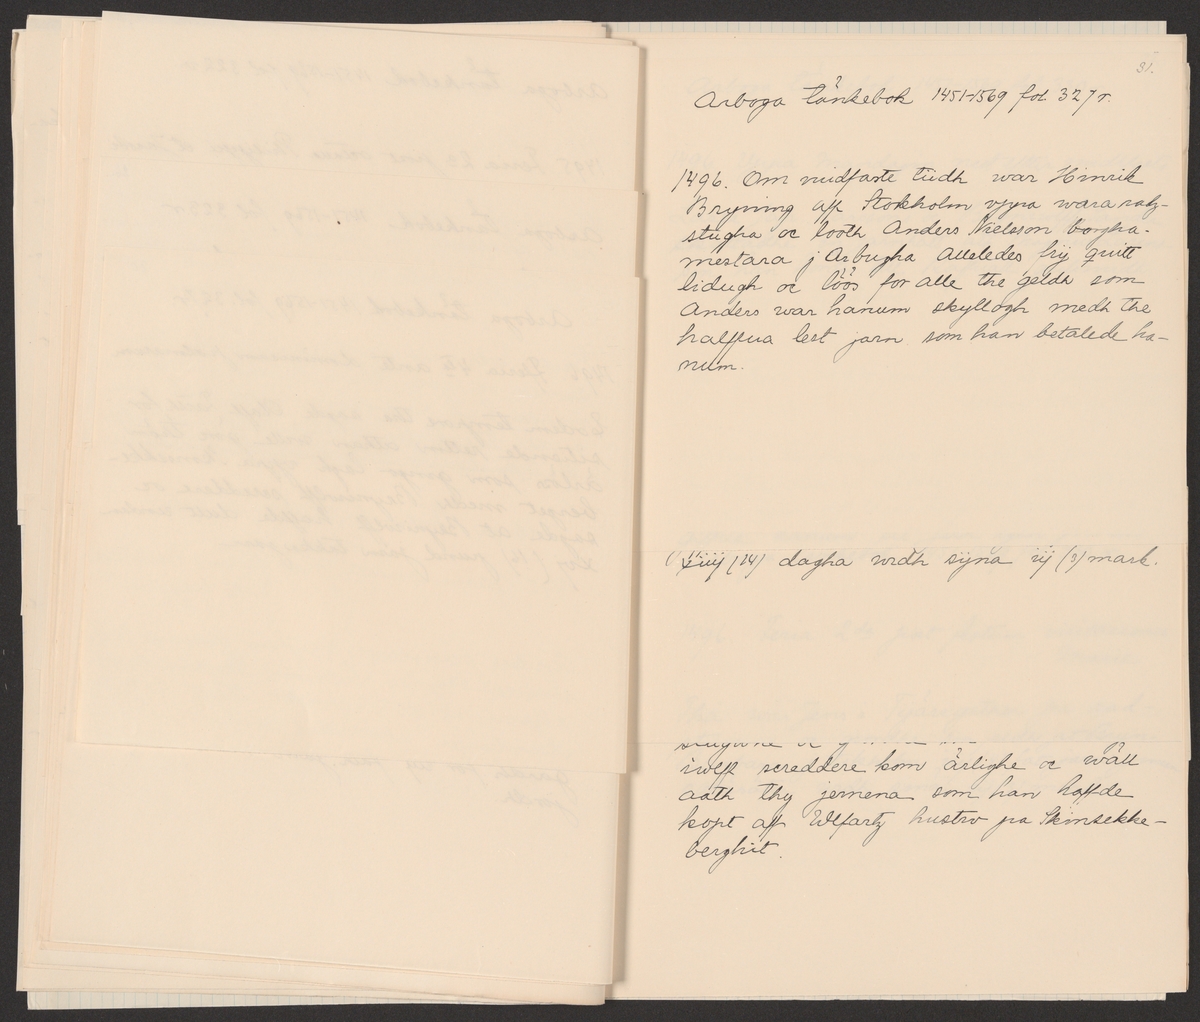 31.
Arboga tänkebok 1451-1569 fol. 327 r.
1496. Om midfaste tiidh war Hinrik
Bryning aff Stokholm vppa wara radz-
stugha oc looth Anders Nielsson borgha-
mestara j Arbugha alleledes frij quitt
lidugh oc löös for alle the geldh som
Anders war hanum skyllogh medh the
halffua lest jarn som han betalede ha-
num.
(14) dagha widh sijna iij (3) mark.
iwlff screddere kom ärlighe oc wäll
aath thy jernena som han haffde
kopt aff Wlfartz hustrv pa Skinsekke-
berghit.